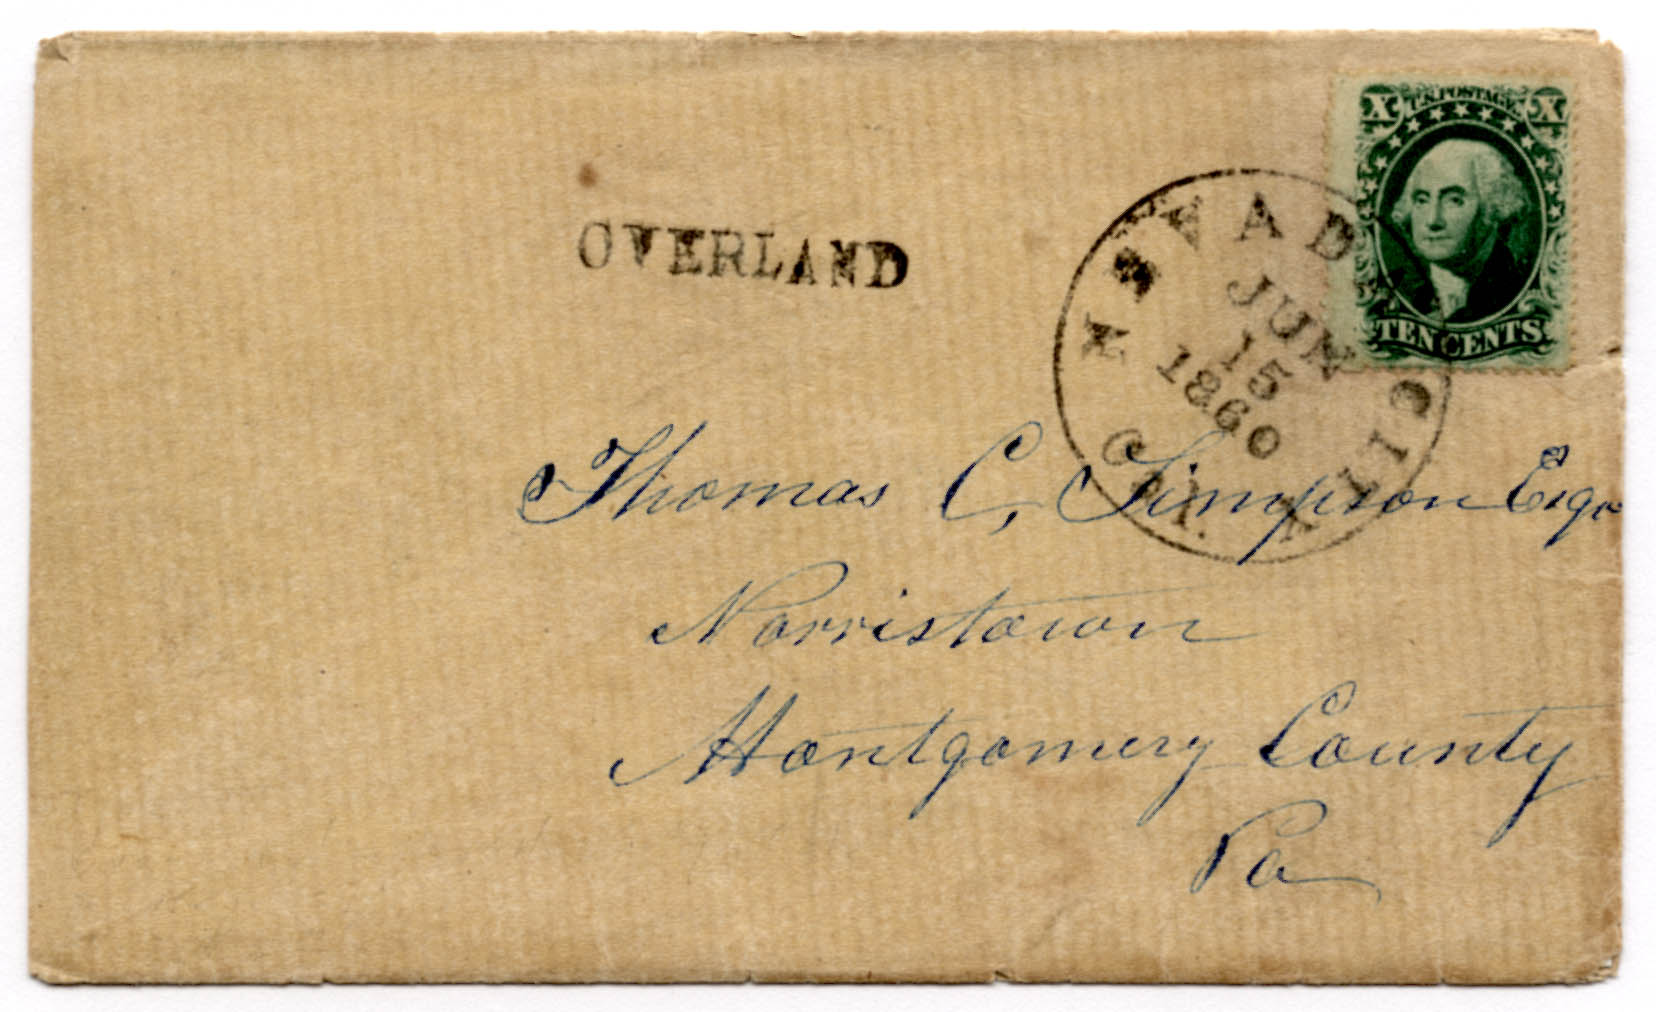 X U.S.POSTAGE. X
TEN CENTS.
OVERLAND
NEVADA CITY CAL.
JUN
15
1860
Thomas C, Simpson Esqr
Norristown
Montgomery County
Pa